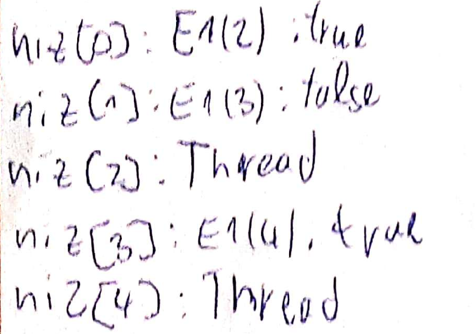 niz[0]: E1(2) : true
niz[1]: E1(3) : false
niz[2]: Thread
niz[3]: E1(4). true
niz[4]: Thread